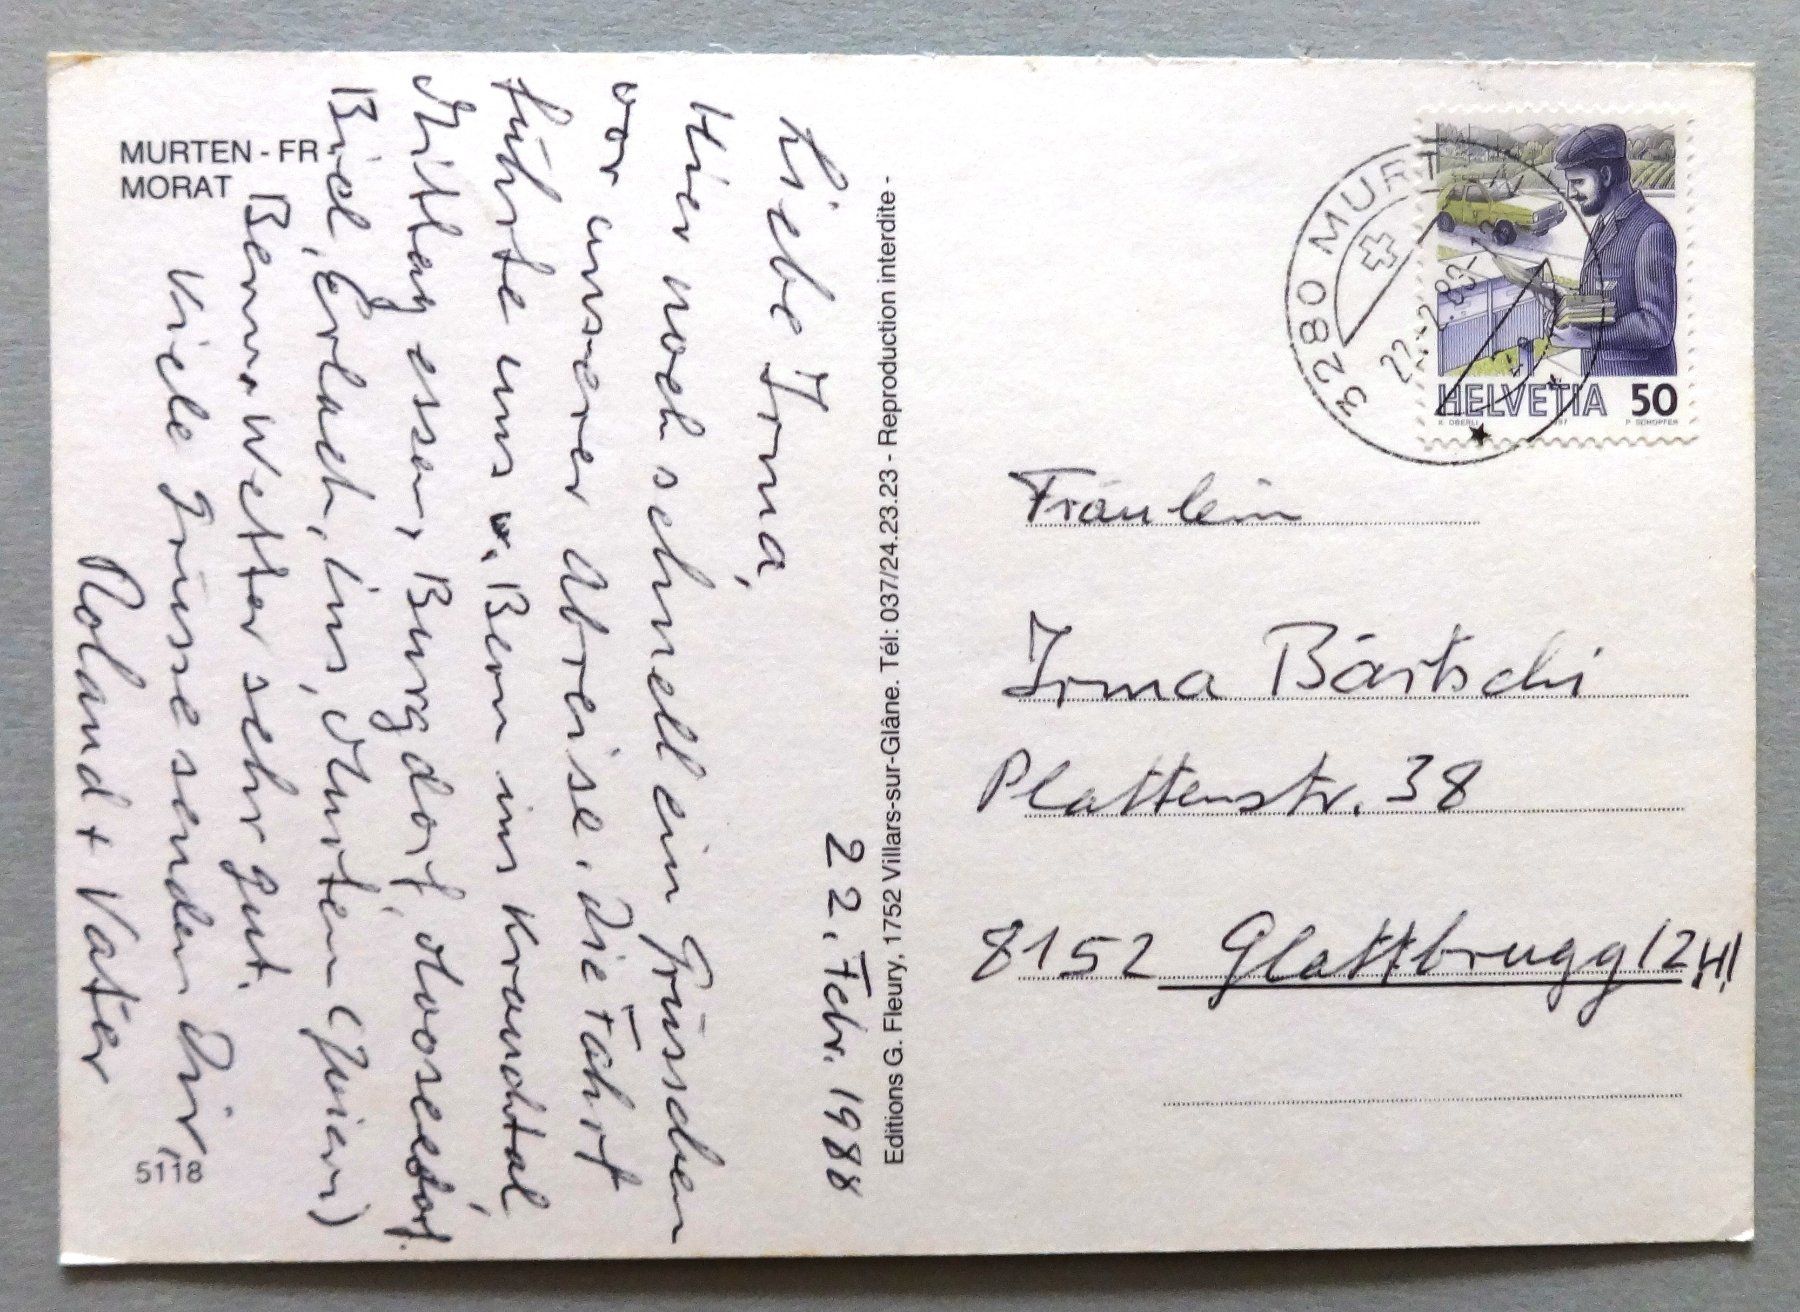 MURTEN - FR -
MORAT
22. Febr. 1988
Liebe Irma,
Hier noch schnell ein Grüsschen
vor unserer Abreise. Die Fahrt
führte uns v. Bern ins Krauchtal,
Mittag essen, Burgdorf, Mooseedorf.
Biel, Erlach, Ins, Murten
Bern. Wetter sehr gut.
Viele Grüsse senden Dir,
Roland + Vater
5118
Editions G. Fleury, 1752 Villars-sur-Glâne. Tél: 037/24.23.23 - Reproduction interdite -
3280 MURT
22.-2.88-12
HELVETIA 50
K. OBERLI
P. SCHOPFER
Fräulein
Irma Bärtschi
Plattenstr. 38
8152 Glattbrugg/ZH